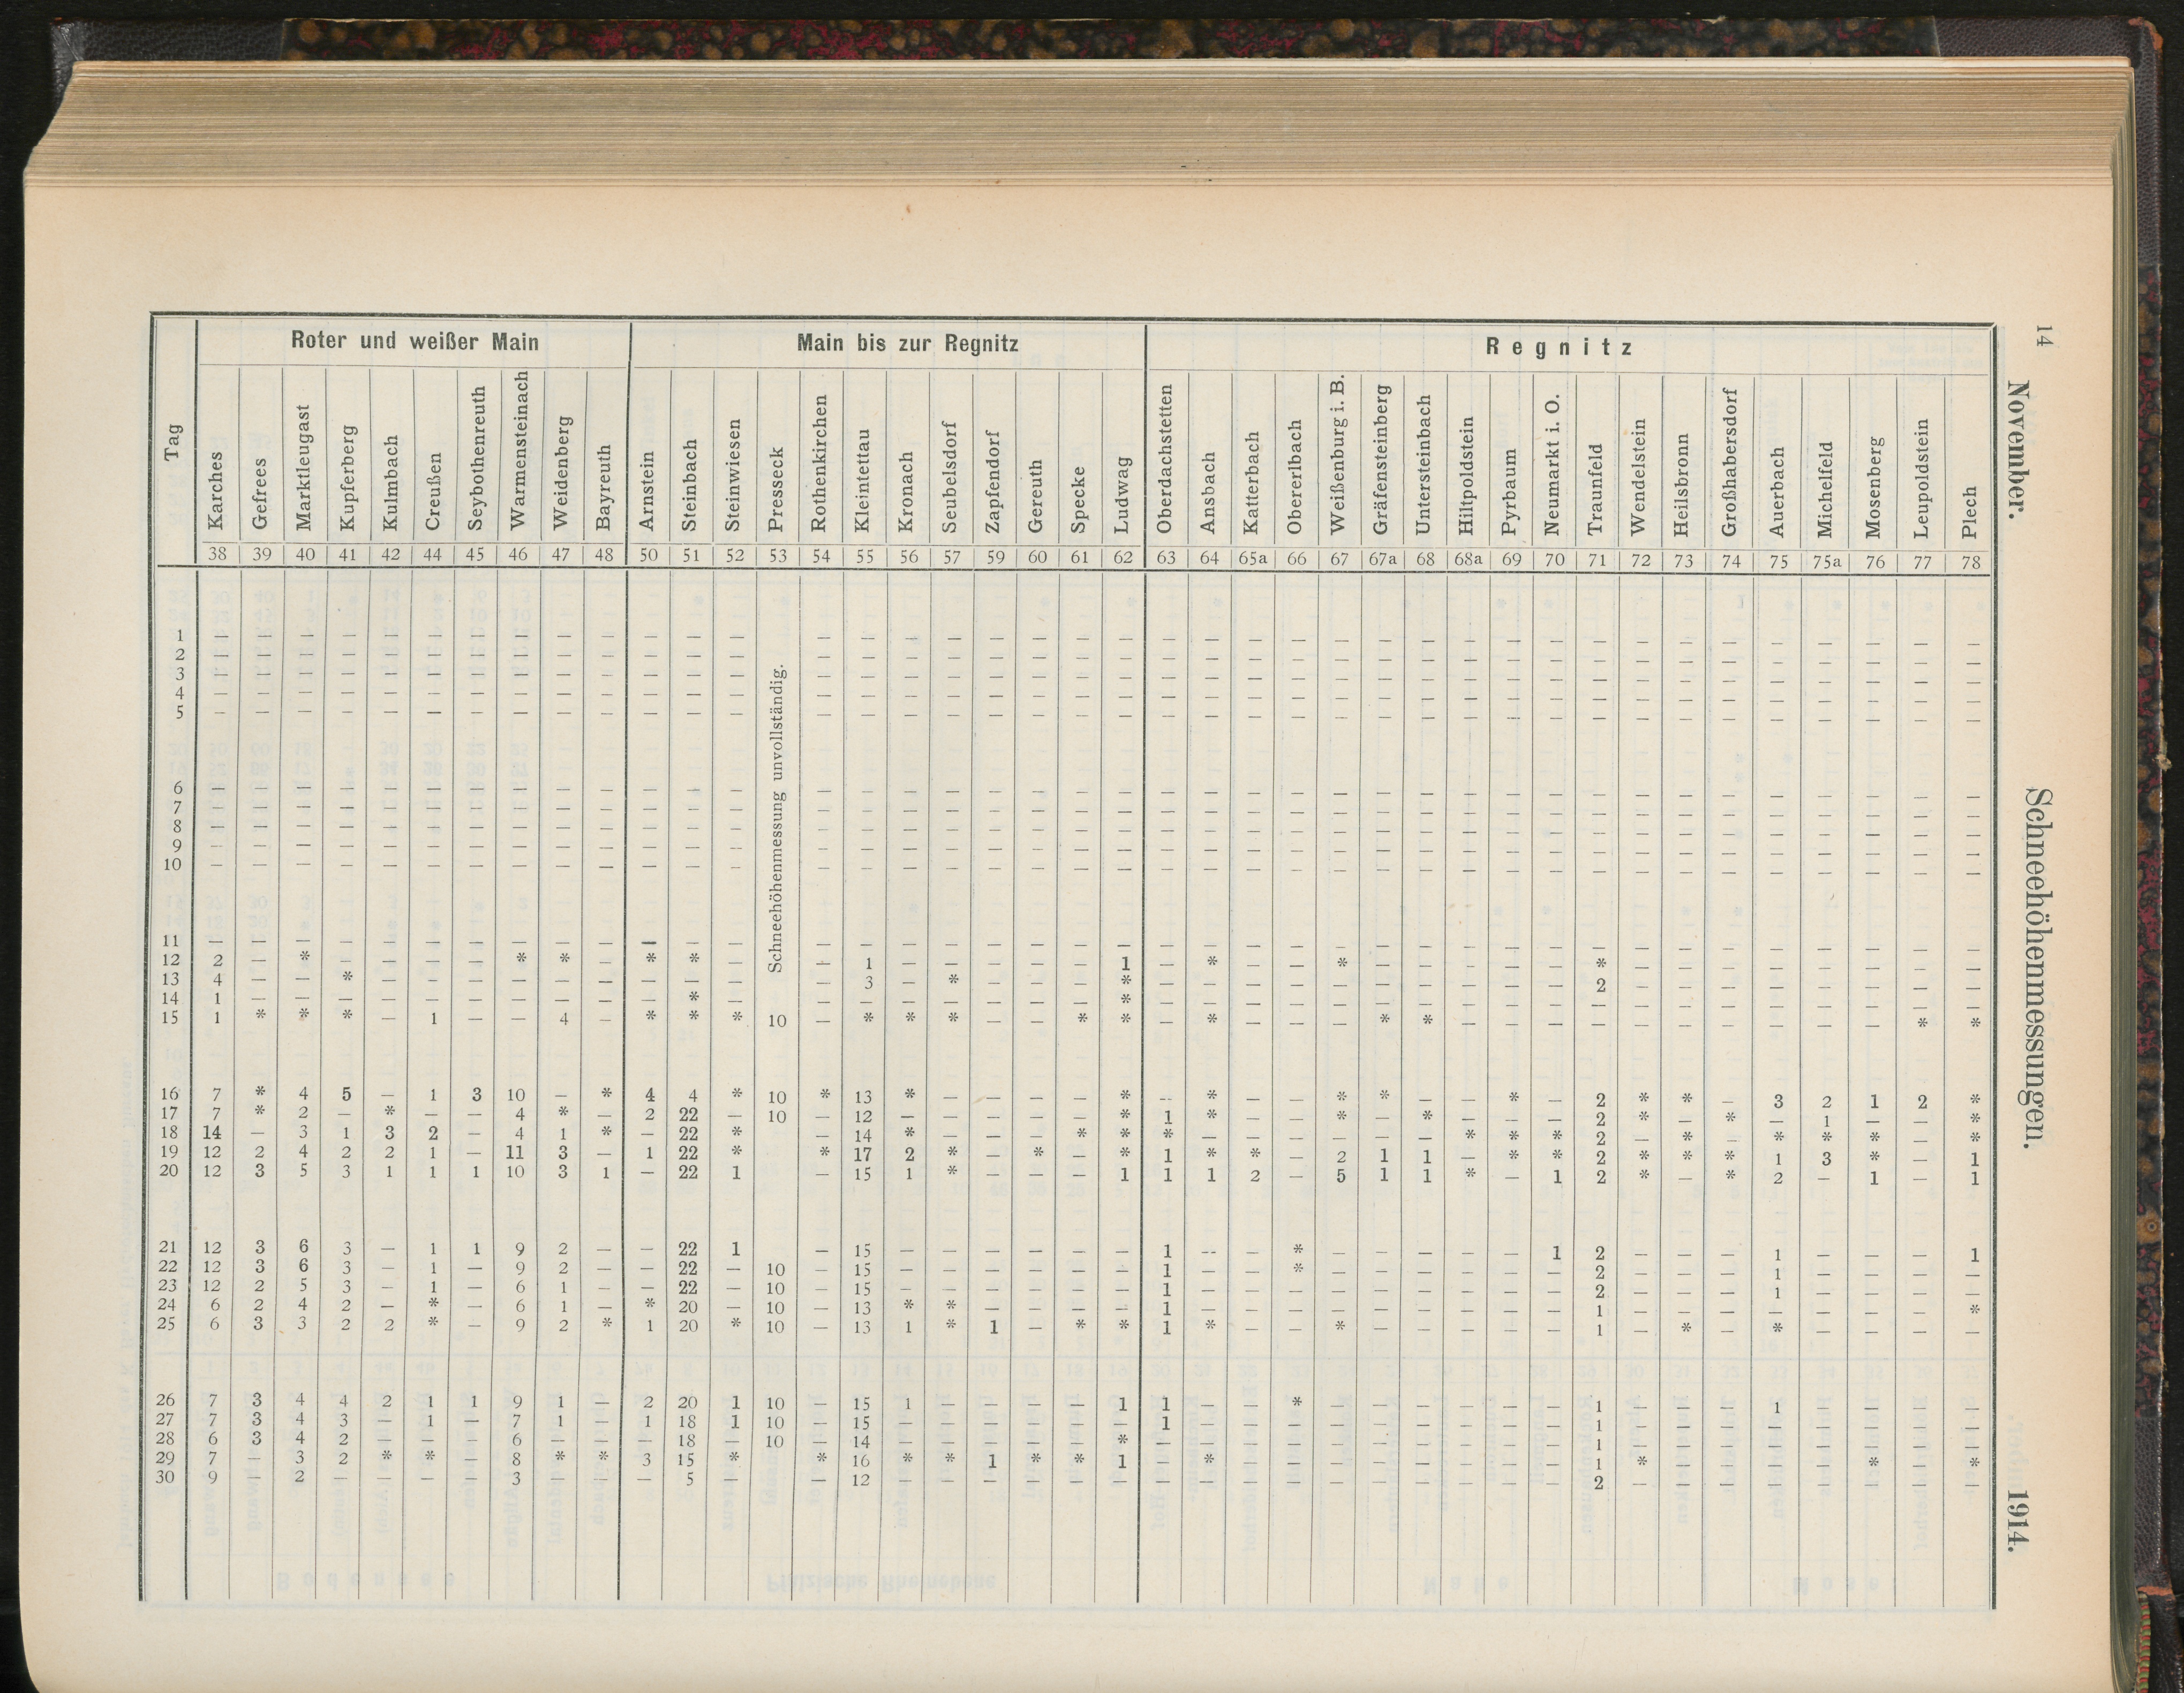 14 November. Schneehöhenmessungen. 1914.
Roter und weißer Main Main bis zur Regnitz Regnitz
Tag Karches Gefrees Marktleugast Kupferberg Kulmbach Creußen Seybothenreuth Warmensteinach Weidenberg Bayreuth Arnstein Steinbach Steinwiesen Presseck Rothenkirchen Kleintettau Kronach Seubelsdorf Zapfendorf Gereuth Specke Ludwag Oberdachstetten Ansbach Katterbach Obererlbach Weißenburg i. B. Gräfensteinberg Untersteinbach Hiltpoldstein Pyrbaum Neumarkt i. O. Traunfeld Wendelstein Heilsbronn Großhabersdorf Auerbach Michelfeld Mosenberg Leupoldstein Plech
38 39 40 41 42 44 45 46 47 48 50 51 52 53 54 55 56 57 59 60 61 62 63 64 65a 66 67 67a 68 68a 69 70 71 72 73 74 75 75a 76 77 78
Schneehöhenmessung unvollständig.
1 — — — — — — — — — — — — — — — — — — — — — — — — — — — — — — — — — — — — — — — —
2 — — — — — — — — — — — — — — — — — — — — — — — — — — — — — — — — — — — — — — — —
3 — — — — — — — — — — — — — — — — — — — — — — — — — — — — — — — — — — — — — — — —
4 — — — — — — — — — — — — — — — — — — — — — — — — — — — — — — — — — — — — — — — —
5 — — — — — — — — — — — — — — — — — — — — — — — — — — — — — — — — — — — — — — — —
6 — — — — — — — — — — — — — — — — — — — — — — — — — — — — — — — — — — — — — — — —
7 — — — — — — — — — — — — — — — — — — — — — — — — — — — — — — — — — — — — — — — —
8 — — — — — — — — — — — — — — — — — — — — — — — — — — — — — — — — — — — — — — — —
9 — — — — — — — — — — — — — — — — — — — — — — — — — — — — — — — — — — — — — — — —
10 — — — — — — — — — — — — — — — — — — — — — — — — — — — — — — — — — — — — — — — —
11 — — — — — — — — — — — — — — — — — — — — — — — — — — — — — — — — — — — — — — — —
12 2 — * — — — — * * — * * — — 1 — — — — — 1 — * — — * — — — — — * — — — — — — — —
13 4 — — * — — — — — — — — — — 3 — * — — — * — — — — — — — — — — 2 — — — — — — — —
14 1 — — — — — — — — — — * — — — — — — — — * — — — — — — — — — — — — — — — — — — —
15 1 * * * — 1 — — 4 — * * * 10 — * * * — — * * — * — — — * * — — — — — — — — — — * *
16 7 * 4 5 — 1 3 10 — * 4 4 * 10 * 13 * — — — — * — * — — * * — — * — 2 * * — 3 2 1 2 *
17 7 * 2 — * — — 4 * — 2 22 — 10 — 12 — — — — — * 1 * — — * — * — — — 2 * — * — 1 — — *
18 14 — 3 1 3 2 — 4 1 * — 22 * — 14 * — — — * * * — — — — — — * * * 2 — * — * * * — *
19 12 2 4 2 2 1 — 11 3 — 1 22 * * 17 2 * — * — * 1 * * — 2 1 1 — * * 2 * * * 1 3 * — 1
20 12 3 5 3 1 1 1 10 3 1 — 22 1 — 15 1 * — — — 1 1 1 2 — 5 1 1 * — 1 2 * — * 2 — 1 — 1
21 12 3 6 3 — 1 1 9 2 — — 22 1 — 15 — — — — — — 1 — — * — — — — — 1 2 — — — 1 — — — 1
22 12 3 6 3 — 1 — 9 2 — — 22 — 10 — 15 — — — — — — 1 — — * — — — — — — 2 — — — 1 — — — —
23 12 2 5 3 — 1 — 6 1 — — 22 — 10 — 15 — — — — — — 1 — — — — — — — — — 2 — — — 1 — — — —
24 6 2 4 2 — * — 6 1 — * 20 — 10 — 13 * * — — — — 1 — — — — — — — — — 1 — — — — — — — *
25 6 3 3 2 2 * — 9 2 * 1 20 * 10 — 13 1 * 1 — * * 1 * — — * — — — — — 1 — * — * — — — —
26 7 3 4 4 2 1 1 9 1 — 2 20 1 10 — 15 1 — — — — 1 1 — — * — — — — — — 1 — — — 1 — — — —
27 7 3 4 3 — 1 — 7 1 — 1 18 1 10 — 15 — — — — — — 1 — — — — — — — — — 1 — — — — — — — —
28 6 3 4 2 — — — 6 — — — 18 — 10 — 14 — — — — — * — — — — — — — — — — 1 — — — — — — — —
29 7 — 3 2 * * — 8 * * 3 15 * * 16 * * 1 * * 1 — * — — — — — — — — 1 * — — — — * — *
30 9 — 2 — — — — 3 — — — 5 — — 12 — — — — — — — — — — — — — — — — 2 — — — — — — — —